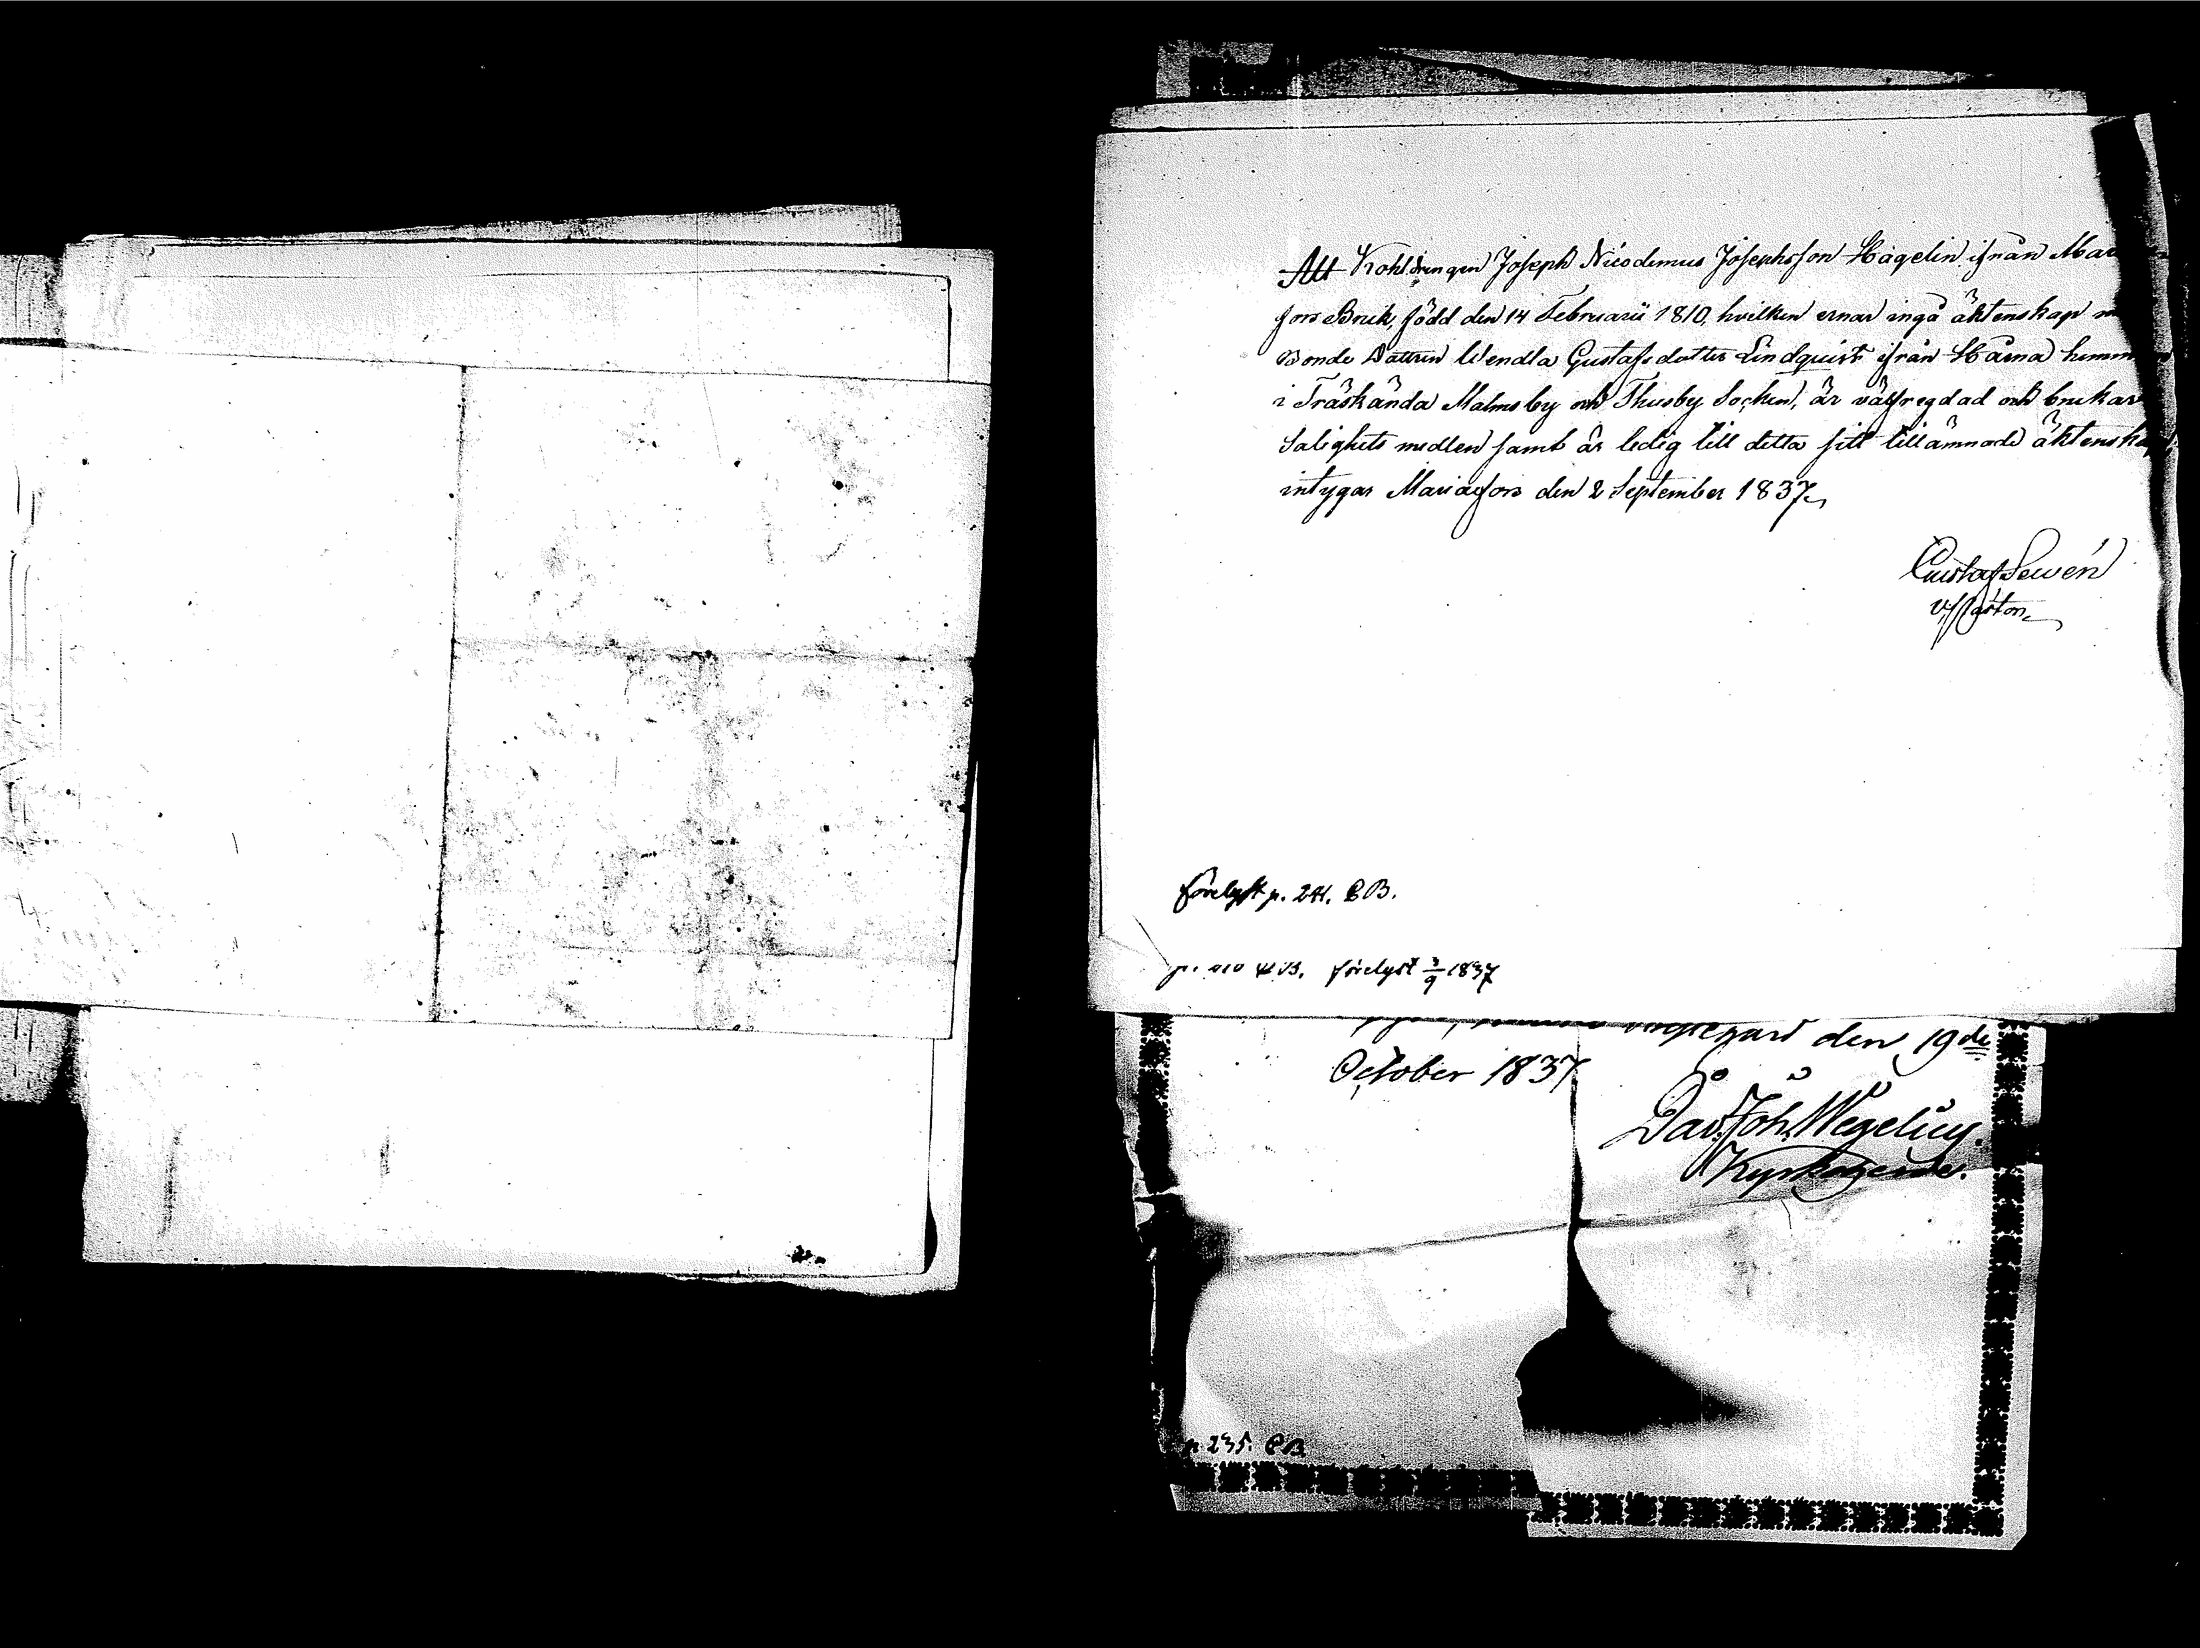 Att Kohldrengen Joseph Nicodemus Josephsson Hagelin ifrån Mar
fors Bruk, född den 14 Februarii 1810, hvilken ernar ingå äktenskap
Bonde Dottren Wendla Gustafsdotter Lindquist ifrån Härna hemm
i Träskända Malmsby och Thusby Sochen, är välfregdad och brukar
Salighets medlen samt är ledig till detta sitt tillämnade äktenska
intygar Mariæfors den 2 September 1837.
Gustaf Lewén
V. Pastor
förelyst p. 241. CB.
p. förelyst 3/9 1837
den 19de
October 1837
Dav. Joh. Wegelius.
Kyrkoherde.
p 235. CB